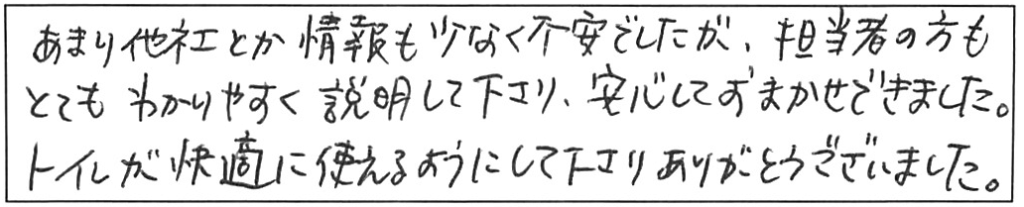 あまり他社とか情報も少なく不安でしたが、担当者の方も
とてもわかりやすく説明して下さり、安心しておまかせできました。
トイレが快適に使えるようにして下さりありがとうございました。